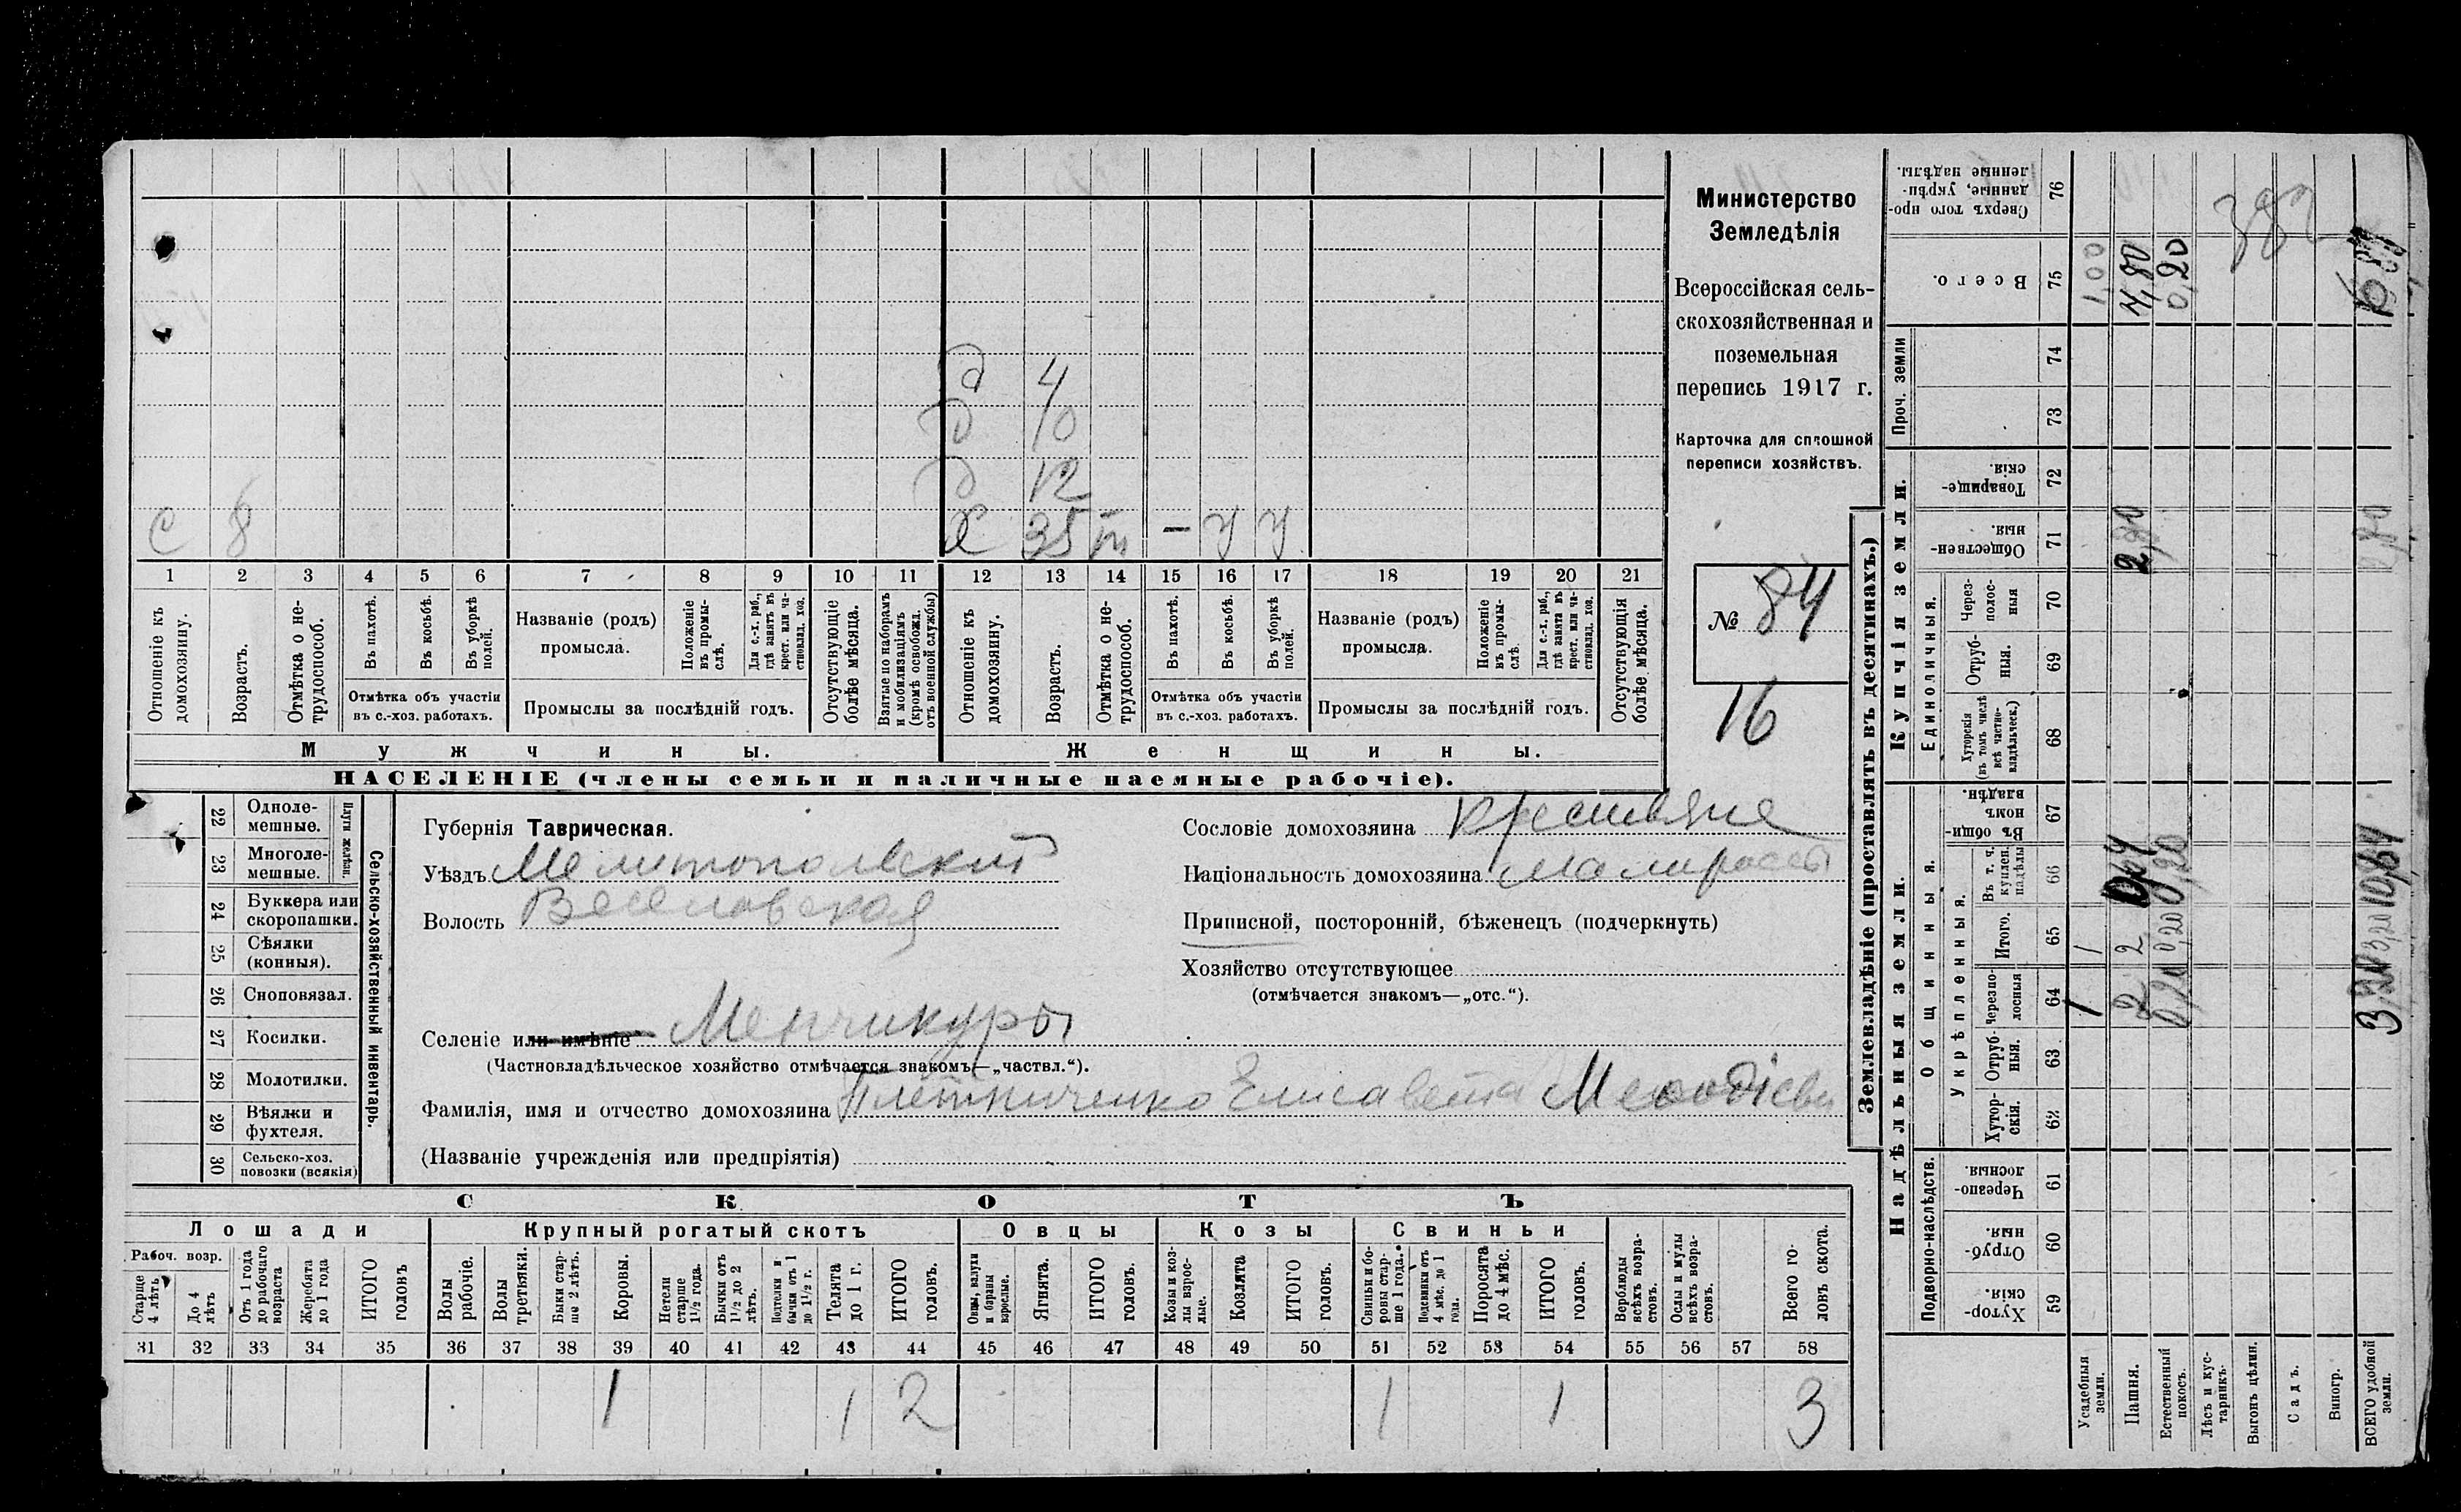 Министерство
Земледѣлія
Всероссійская сель-
скохозяйственная и
поземельная
перепись 1917 г.
Карточка для сплошной
переписи хозяйствъ.
№ 84
16
д 4
д 10
д 12
С 8 Х 35 – у у
1 2 3 4 5 6 7 8 9 10 11 12 13 14 15 16 17 18 19 20 21
Отношеніе къ домохозяину.
Возрастъ.
Отмѣтка о не-трудоспособ.
Въ пахотѣ.
Въ косьбѣ.
Въ уборкѣ полей.
Отмѣтка объ участіи въ с.-хоз. работахъ.
Названіе (родъ) промысла.
Положеніе въ промы-слѣ.
Для с.-х. раб., гдѣ занятъ въ крест. или ча-стновлад. хоз.
Промыслы за послѣдній годъ.
Отсутствующіе болѣе мѣсяца.
Взятые по наборамъ и мобилизаціямъ (кромѣ освобожд. отъ военной службы)
Отношеніе къ домохозяину.
Возрастъ.
Отмѣтка о не-трудоспособ.
Въ пахотѣ.
Въ косьбѣ.
Въ уборкѣ полей.
Отмѣтка объ участіи въ с.-хоз. работахъ.
Названіе (родъ) промысла.
Положеніе въ промы-слѣ.
Для с.-х. раб., гдѣ занята въ крест. или ча-стновлад. хоз.
Промыслы за послѣдній годъ.
Отсутствующія болѣе мѣсяца.
Мужчины. Женщины.
НАСЕЛЕНІЕ (члены семьи и наличные наемные рабочіе).
22 Одноле-мешные.
23 Многоле-мешные.
Плуги желѣзн.
24 Буккера или скоропашки.
25 Сѣялки (конныя).
26 Сноповязал.
27 Косилки.
28 Молотилки.
29 Вѣялки и фухтеля.
30 Сельско-хоз. повозки (всякія)
Сельско-хозяйственный инвентарь.
Губернія Таврическая.
Уѣздъ Мелитопольский
Волость Веселовская
Селеніе или имѣніе Менчикуры
(Частновладѣльческое хозяйство отмѣчается знакомъ—„частвл.“).
Сословіе домохозяина крестьяне
Національность домохозяина малороссы
Приписной, посторонній, бѣженецъ (подчеркнуть)
Хозяйство отсутствующее
(отмѣчается знакомъ—„отс.“).
Фамилія, имя и отчество домохозяина Плетниченко Елисавета Мефодіевн
(Названіе учрежденія или предпріятія)
СКОТЪ
Лошади Крупный рогатый скотъ Овцы Козы Свиньи
Рабоч. возр.
Старше 4 лѣтъ
До 4 лѣтъ
Отъ 1 года до рабочаго возраста
Жеребята до 1 года
ИТОГО головъ
Волы рабочіе.
Волы третьяки.
Быки стар-ше 2 лѣтъ.
Коровы.
Нетели старше 1½ года.
Бычки отъ 1½ до 2 лѣтъ.
Подтелки и бычки отъ 1 до 1½ г.
Телята до 1 г.
ИТОГО головъ.
Овцы, валухи и бараны взрослые.
Ягнята.
ИТОГО головъ.
Козы и коз-лы взрос-лые.
Козлята
ИТОГО головъ.
Свиньи и бо-ровы стар-ше 1 года.
Подсвинки отъ 4 мѣс. до 1 года.
Поросята до 4 мѣс.
ИТОГО головъ.
Верблюды всѣхъ возра-стовъ.
Ослы и мулы всѣхъ возра-стовъ.
Всего го-ловъ скота.
31 32 33 34 35 36 37 38 39 40 41 42 43 44 45 46 47 48 49 50 51 52 53 54 55 56 57 58
1 1 2 1 1 3
Землевладѣніе (проставлять въ десятинахъ.)
Надѣльныя земли. Купчія земли. Проч. земли
Подворно-наслѣдств.
Общинныя.
Укрѣпленныя.
Единоличныя.
Хутор-скія. 59
Отруб-ныя. 60
Черезпо-лосныя. 61
Хутор-скія. 62
Отруб-ныя. 63
Черезпо-лосныя 64
Итого. 65
Въ т. ч. куплен. надѣлы 66
Въ общи-номъ владѣн. 67
Хуторскія (въ томъ числѣ всѣ частно-владѣльческ.) 68
Отруб-ныя. 69
Через-полос-ныя 70
Обществен-ныя. 71
Товарище-скія. 72
73
74
Всего. 75
Сверхъ того про-данные, укрѣп-ленные надѣлы. 76
Усадебныя земли. 1 1 1,00
Пашня. 2 2 2,80
Естественный покосъ. 0,20 0,20 0,20
Лѣсъ и кус-тарникъ.
Выгонъ цѣлин.
Садъ.
Виногр.
ВСЕГО удобной земли. 3,20 2,80
382